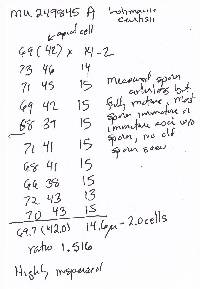 MU 249845 A
apical cell
69 (42) x 14-2
73 46 14
71 45 15
69 42 15
68 39 15
71 41 15
68 41 15
66 38 15
72 43 13
70 43 15
69.7 (42.0) 14.6µ - 2.0 cells
ratio 1.516
measured spores
but
fully mature, most
spores immature or
immature asci w/o
spores, no old
spores seen
Highly